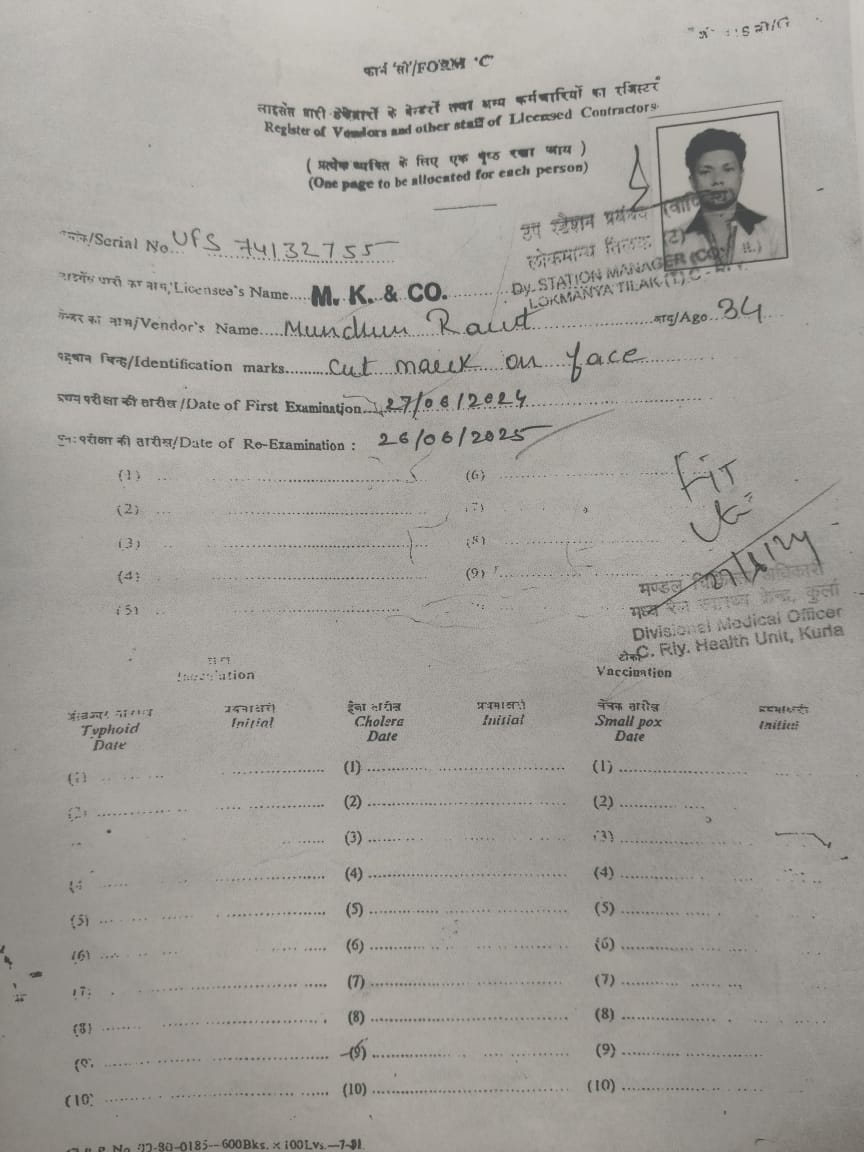 फार्म 'सी'/FORM 'C'
लाइसेंस धारी ठेकेदारों के वेन्डरों तथा अन्य कर्मचारियों का रजिस्टर
Register of Vendors and other staff of Licensed Contractors.
( प्रत्येक व्यक्ति के लिए एक पृष्ठ रखा जाय )
(One page to be allocated for each person)
उप स्टेशन प्रबंधक (वाणिज्य)
लोकमान्य तिलक (ट)
Dy. STATION MANAGER
LOKMANYA TILAK (T)
/Serial No. UFS 74132755
लाइसेंस धारी का नाम/Licensee's Name..... M. K. & CO.
वेन्डर का नाम/Vendor's Name.... Raut आयु/Age 34
पहचान चिन्ह/Identification marks......... cut mark on face
प्रथम परीक्षा की तारीख/Date of First Examination 27/06/2024
पुनः परीक्षा की तारीख/Date of Re-Examination : 26/06/2025
(1) (6)
(2) (7)
(3) (8)
(4) (9)
(5)
Fit
27/6/24
मध्य रेल स्वास्थ्य केन्द्र, कुर्ला
Divisional Medical Officer
C. Rly. Health Unit, Kurla
Inoculation Vaccination
हैजा तारीख चेचक तारीख
Typhoid Date Initial Cholera Date Initial Small pox Date Initial
(1) (1) (1)
(2) (2) (2)
(3) (3)
(4 (4) (4)
(5) (5) (5)
(6) (6) (6)
(7) (7)
(8) (8) (8)
(9) (9) (9)
(10) (10) (10)
600Bks. × 100Lvs.